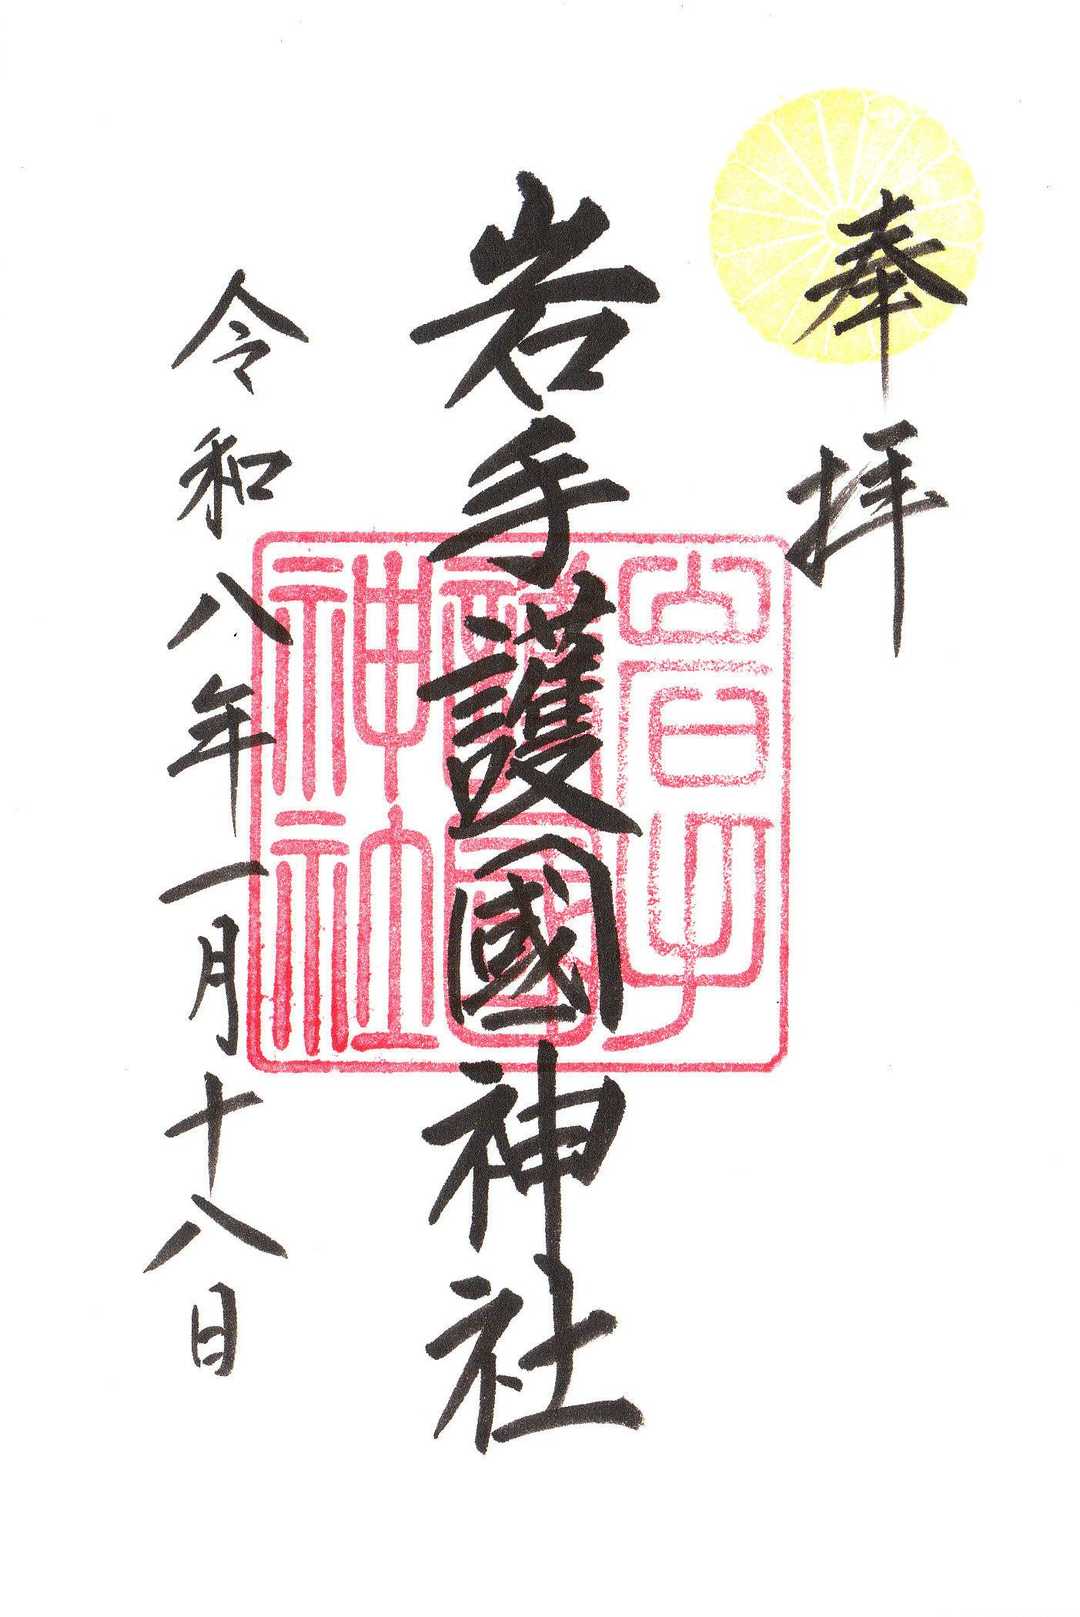 奉拝
岩手護國神社
令和八年一月十八日
岩手
護國
神社